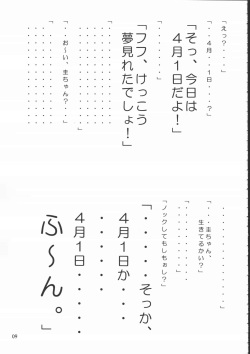 「えっ?・・・」
「・・・４月・・・１日・・・?」
「そっ、今日は
４月１日だよ!」
「・・・・・・」
「フフ、けっこう
夢見れたでしょ!」
・・・・・・・・・・・・
「・・お〜い、圭ちゃん?・・」
・・・・・・・・・・・・
・・・・・・・・・・・・
「・・・圭ちゃん、
生きてるかい?」
・・・・・・・・・
「ノックしてもしもぉし?」
・・・・・・・・・
「・・・・・そっか、
４月１日か・・・・
・・・・・・
４月１日・・・・・
ふ〜ん。」
09